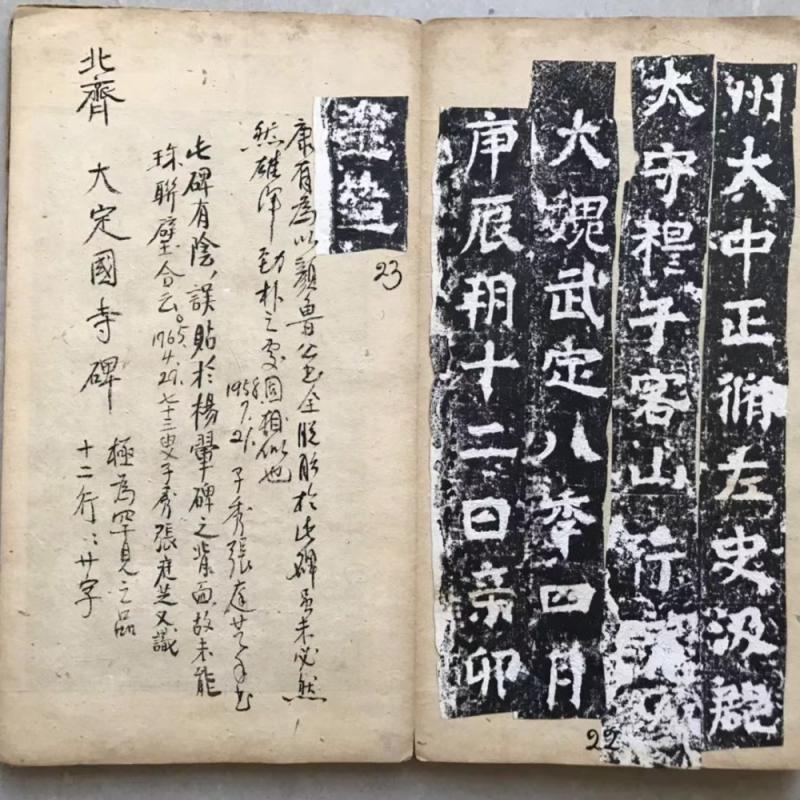 州大中正脩左史汲郡
太守穆子容山行
大魏武定八年四月
庚辰朔十二日辛卯
22
23
康有為以顏魯公書全脫胎於此碑虽未必然
然雄渾勁朴之處固相似也
1958.7.21. 子秀張庭芝
此碑有陰,誤貼於楊翬碑之背面故未能
珠聯璧合云。1965.4.29. 七十三叟子秀張庭芝又識
北齊 大定國寺碑
極為罕見之品
十二行:廿字